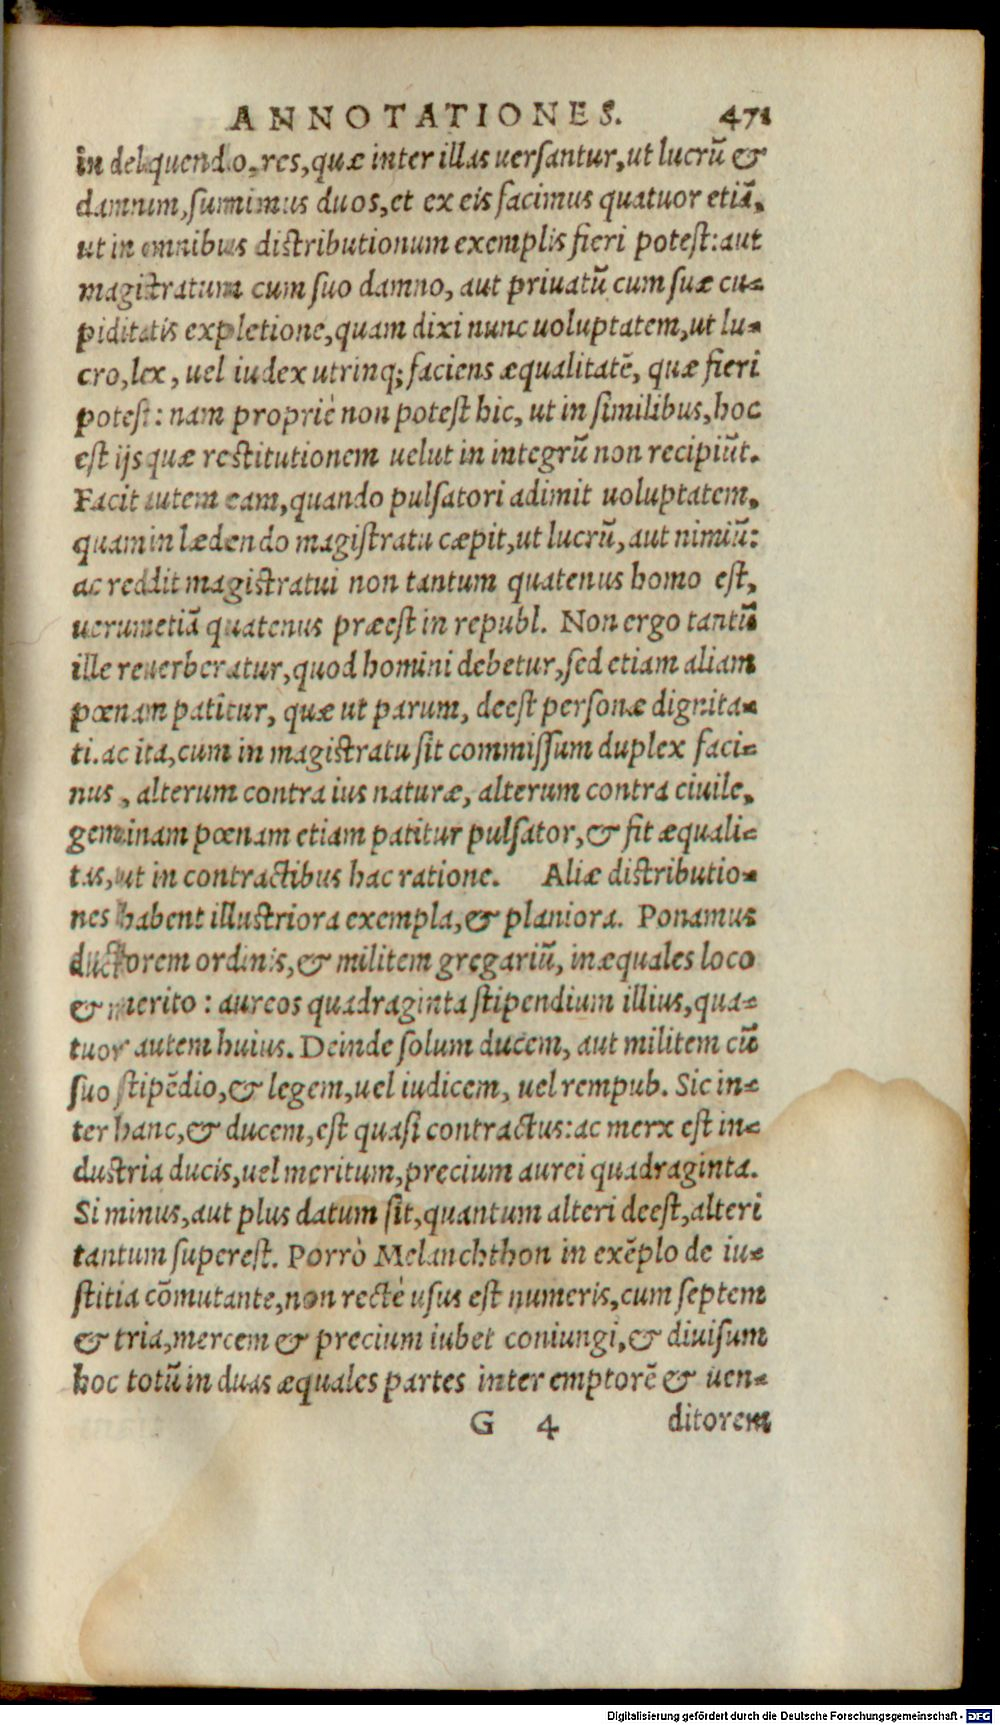 ANNOTATIONES. 471
in delĩquendo, res, quæ inter illas uersantur, ut lucrũ &
damnum, summimus duos, et ex eis facimus quatuor etiã,
ut in omnibus distributionum exemplis fieri potest: aut
magistratum cum suo damno, aut priuatũ cum suæ cu-
piditatis expletione, quam dixi nunc uoluptatem, ut lu-
cro, lex, uel iudex utrinq; faciens æqualitatẽ, quæ fieri
potest: nam propriè non potest hic, ut in similibus, hoc
est ijs quæ restitutionem uelut in integrũ non recipiũt.
Facit autem eam, quando pulsatori adimit uoluptatem,
quam in lædendo magistratu cæpit, ut lucrũ, aut nimiũ:
ac reddit magistratui non tantum quatenus homo est,
uerumetiã quatenus præest in republ. Non ergo tantũ
ille reuerberatur, quod homini debetur, sed etiam aliam
pœnam patitur, quæ ut parum, deest personæ dignita-
ti. ac ita, cum in magistratu sit commissum duplex faci-
nus, alterum contra ius naturæ, alterum contra ciuile,
geminam pœnam etiam patitur pulsator, & fit æquali-
tas, ut in contractibus hac ratione. Aliæ distributio-
nes habent illustriora exempla, & planiora. Ponamus
ductorem ordinis, & militem gregariũ, inæquales loco
& merito: aureos quadraginta stipendium illius, qua-
tuor autem huius. Deinde solum ducem, aut militem cũ
suo stipẽdio, & legem, uel iudicem, uel rempub. Sic in-
ter hanc, & ducem, est quasi contractus: ac merx est in-
dustria ducis, uel meritum, precium aurei quadraginta.
Si minus, aut plus datum sit, quantum alteri deest, alteri
tantum superest. Porrò Melanchthon in exẽplo de iu-
stitia cõmutante, non rectè usus est numeris, cum septem
& tria, mercem & precium iubet coniungi, & diuisum
hoc totũ in duas æquales partes inter emptorẽ & uen-
G 4 ditorem
Digitalisierung gefördert durch die Deutsche Forschungsgemeinschaft - DFG